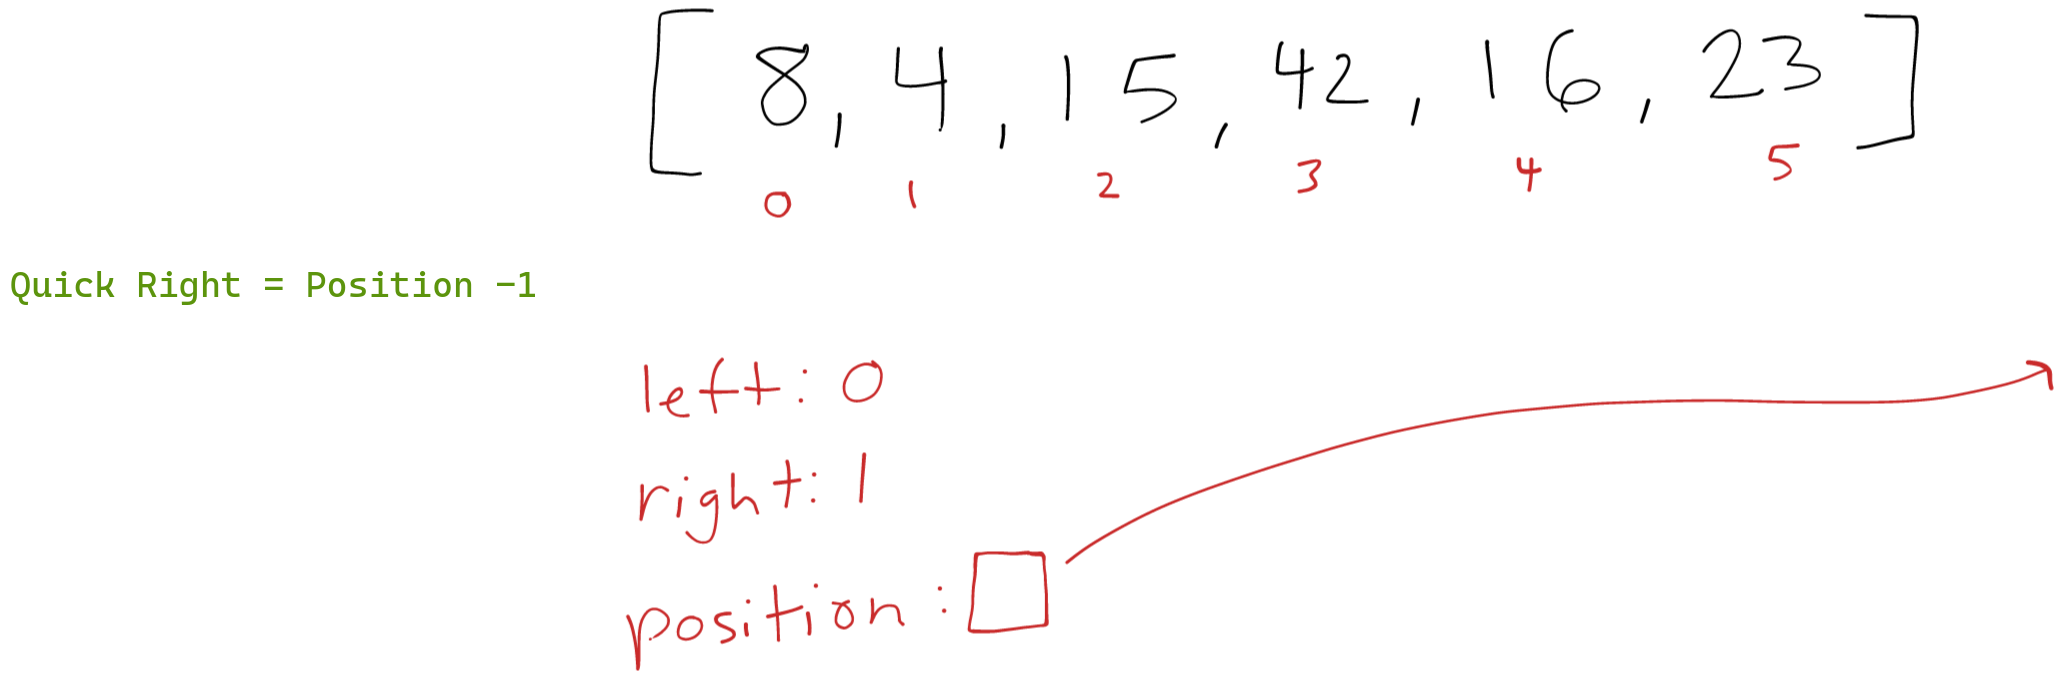 [ 8, 4, 15, 42, 16, 23 ]
0 1 2 3 4 5
Quick Right = Position -1
left: 0
right: 1
position: